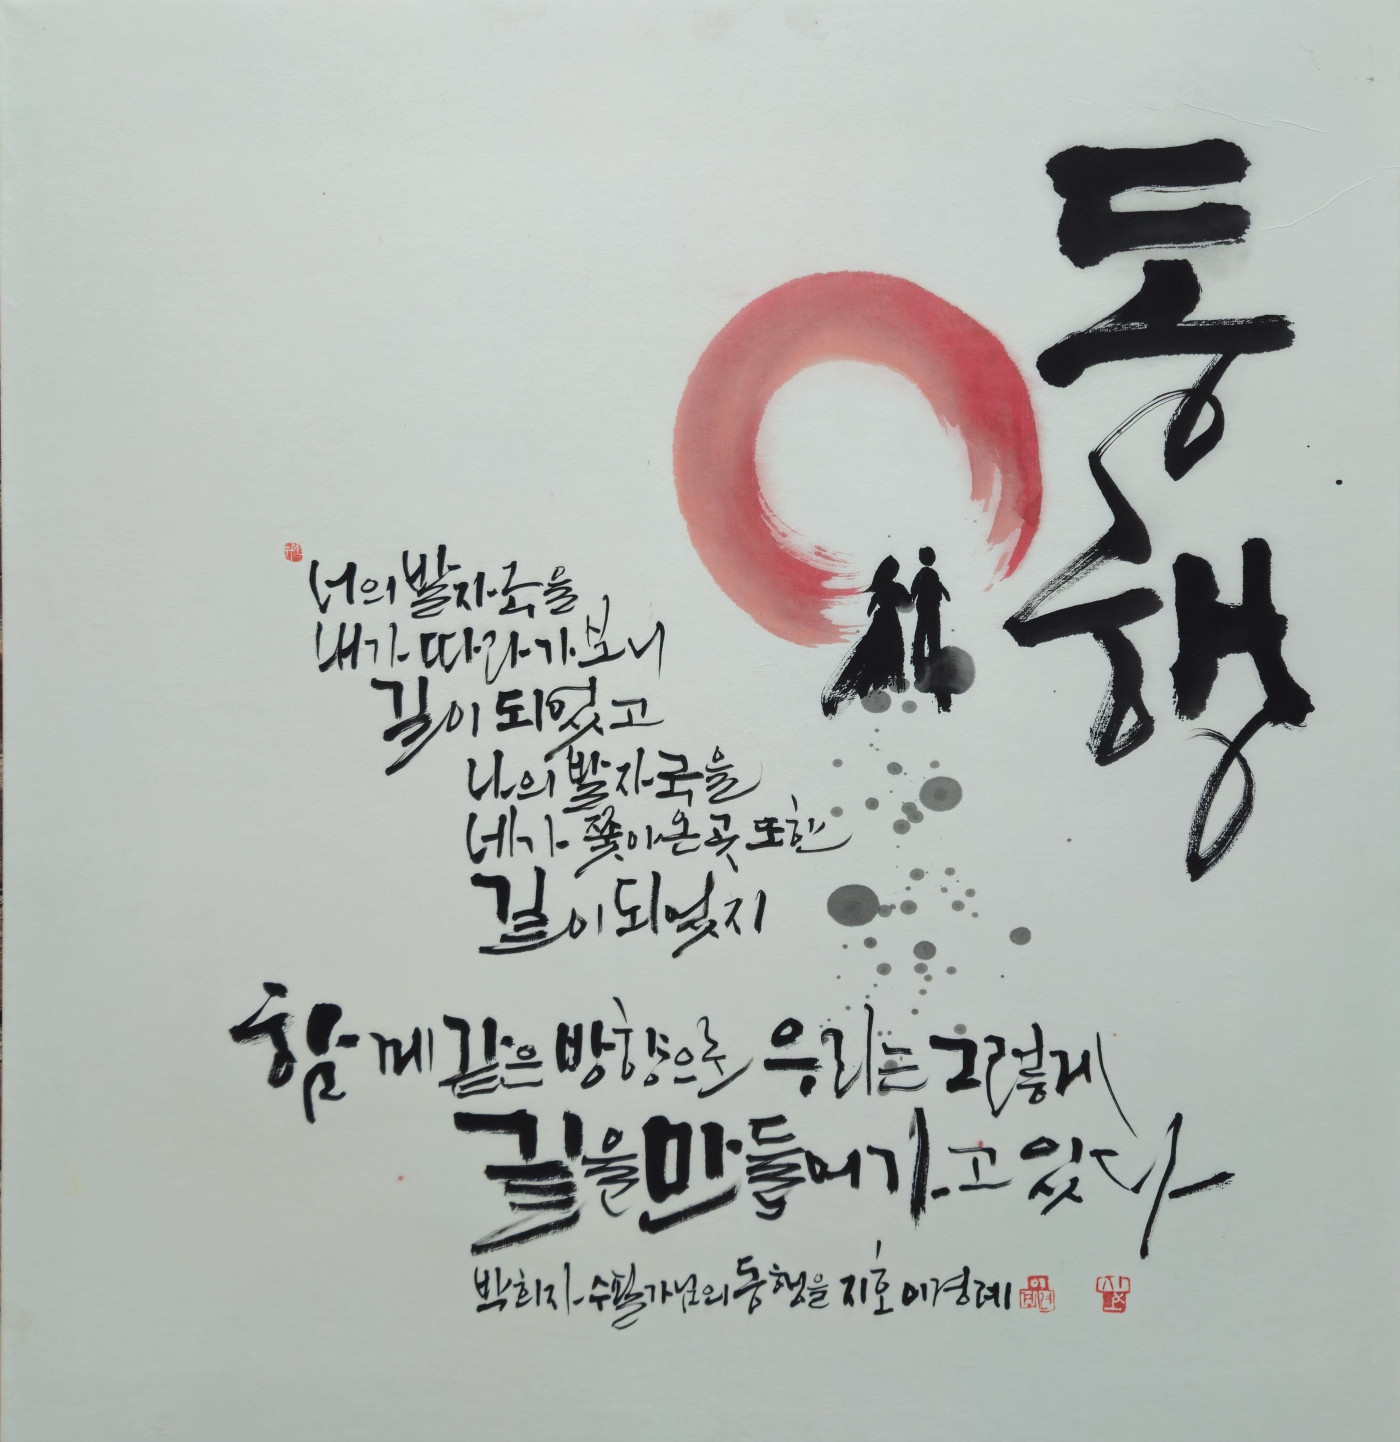 동행
너의 발자국을
내가 따라가 보니
길이 되었고
나의 발자국을
네가 쫓아온 곳 또한
길이 되었지
함께 같은 방향으로 우리는 그렇게
길을 만들어 가고 있다
박희자 수필가님의 동행을 지호 이경례